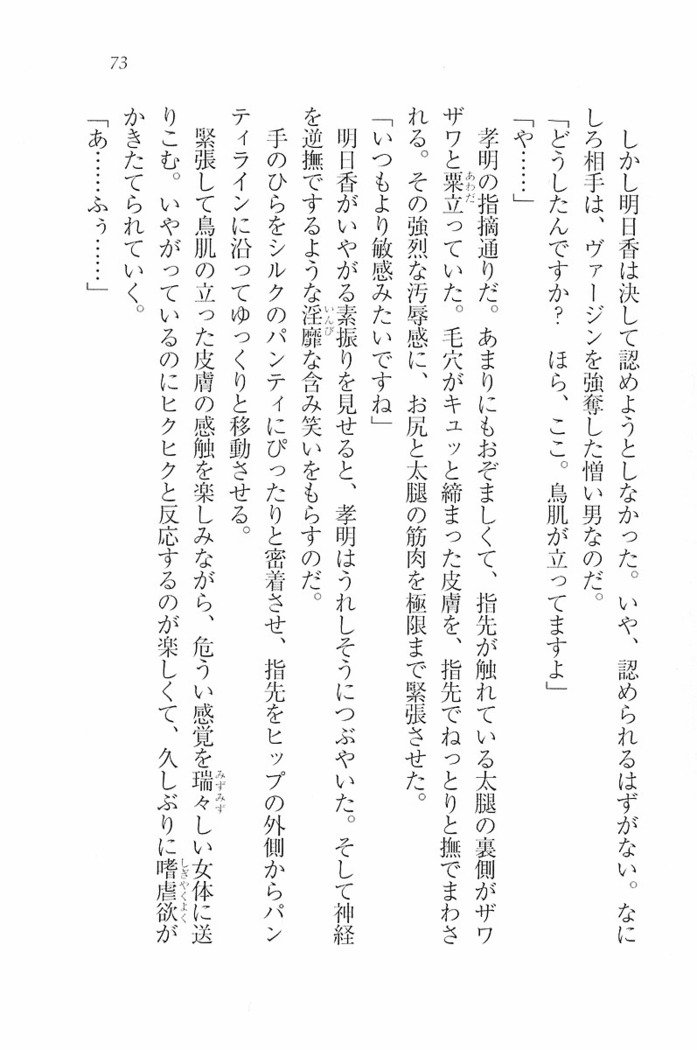 73
しかし明日香は決して認めようとしなかった。いや、認められるはずがない。なに
しろ相手は、ヴァージンを強奪した憎い男なのだ。
「どうしたんですか？　ほら、ここ。鳥肌が立ってますよ」
「や……」
孝明の指摘通りだ。あまりにもおぞましくて、指先が触れている太腿の裏側がザワ
あわだ
ザワと粟立っていた。毛穴がキュッと締まった皮膚を、指先でねっとりと撫でまわさ
れる。その強烈な汚辱感に、お尻と太腿の筋肉を極限まで緊張させた。
「いつもより敏感みたいですね」
明日香がいやがる素振りを見せると、孝明はうれしそうにつぶやいた。そして神経
いんび
を逆撫でするような淫靡な含み笑いをもらすのだ。
手のひらをシルクのパンティにぴったりと密着させ、指先をヒップの外側からパン
ティラインに沿ってゆっくりと移動させる。
みずみず
緊張して鳥肌の立った皮膚の感触を楽しみながら、危うい感覚を瑞々しい女体に送
しぎやくよく
りこむ。いやがっているのにヒクヒクと反応するのが楽しくて、久しぶりに嗜虐欲が
かきたてられていく。
「あ……ふぅ……」